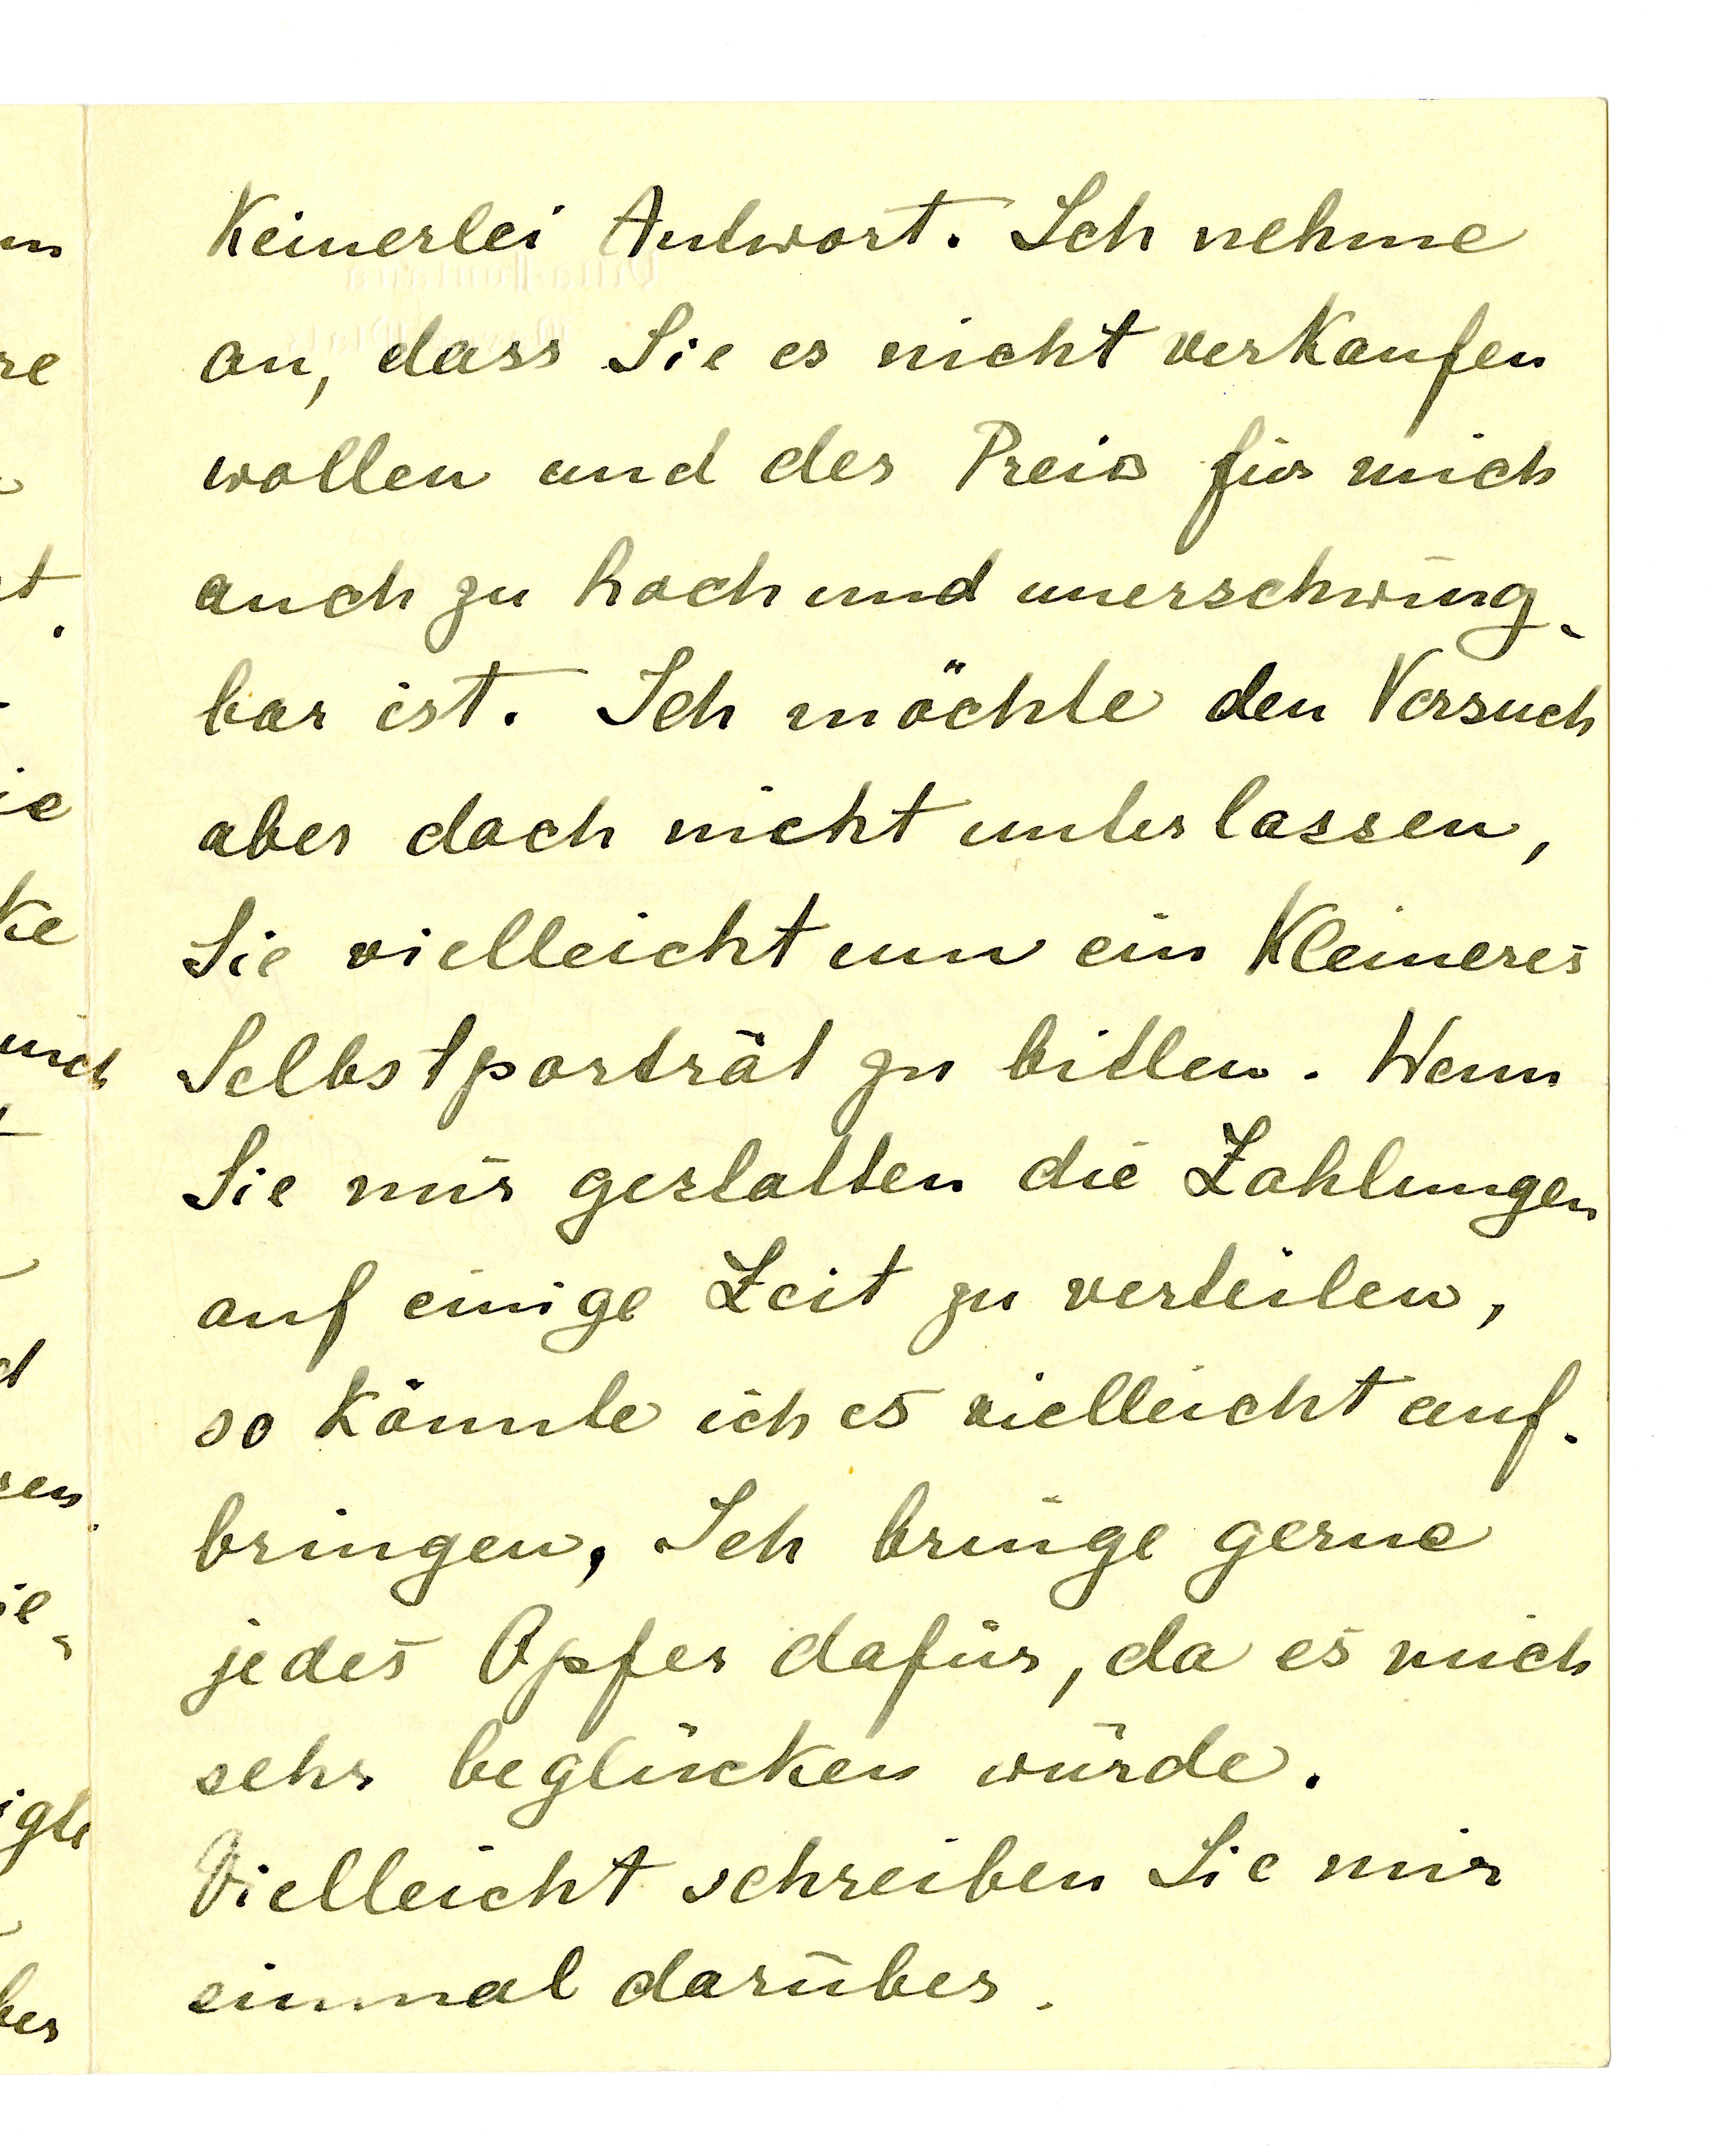 Keinerlei Antwort. Ich nehme
an, dass Sie es nicht verkaufen
wollen und der Preis für mich
auch zu hoch und unerschwing-
bar ist. Ich möchte den Versuch
aber doch nicht unterlassen,
Sie vielleicht um ein Kleineres
Selbstporträt zu bitten. Wenn
Sie mir gestatten die Zahlungen
auf einige Zeit zu verteilen,
so könnte ich es vielleicht auf-
bringen, Ich bringe gerne
jedes Opfer dafür, da es mich
sehr beglücken würde.
Vielleicht schreiben Sie mir
einmal darüber.